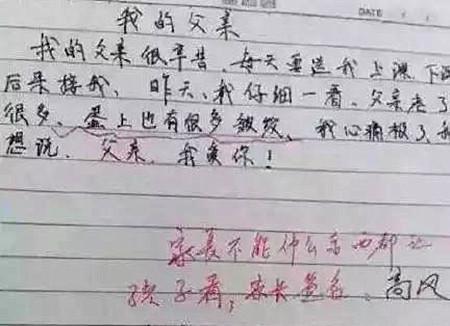 DATE
我的父亲
我的父亲很辛苦，每天要送我上课，下课
后来接我，昨天，我仔细一看，父亲老了
很多，蛋上也有很多皱纹，我心痛极了，
想说，父亲，我爱你！
家长不能什么东西都让
孩子看，家长签名：高风